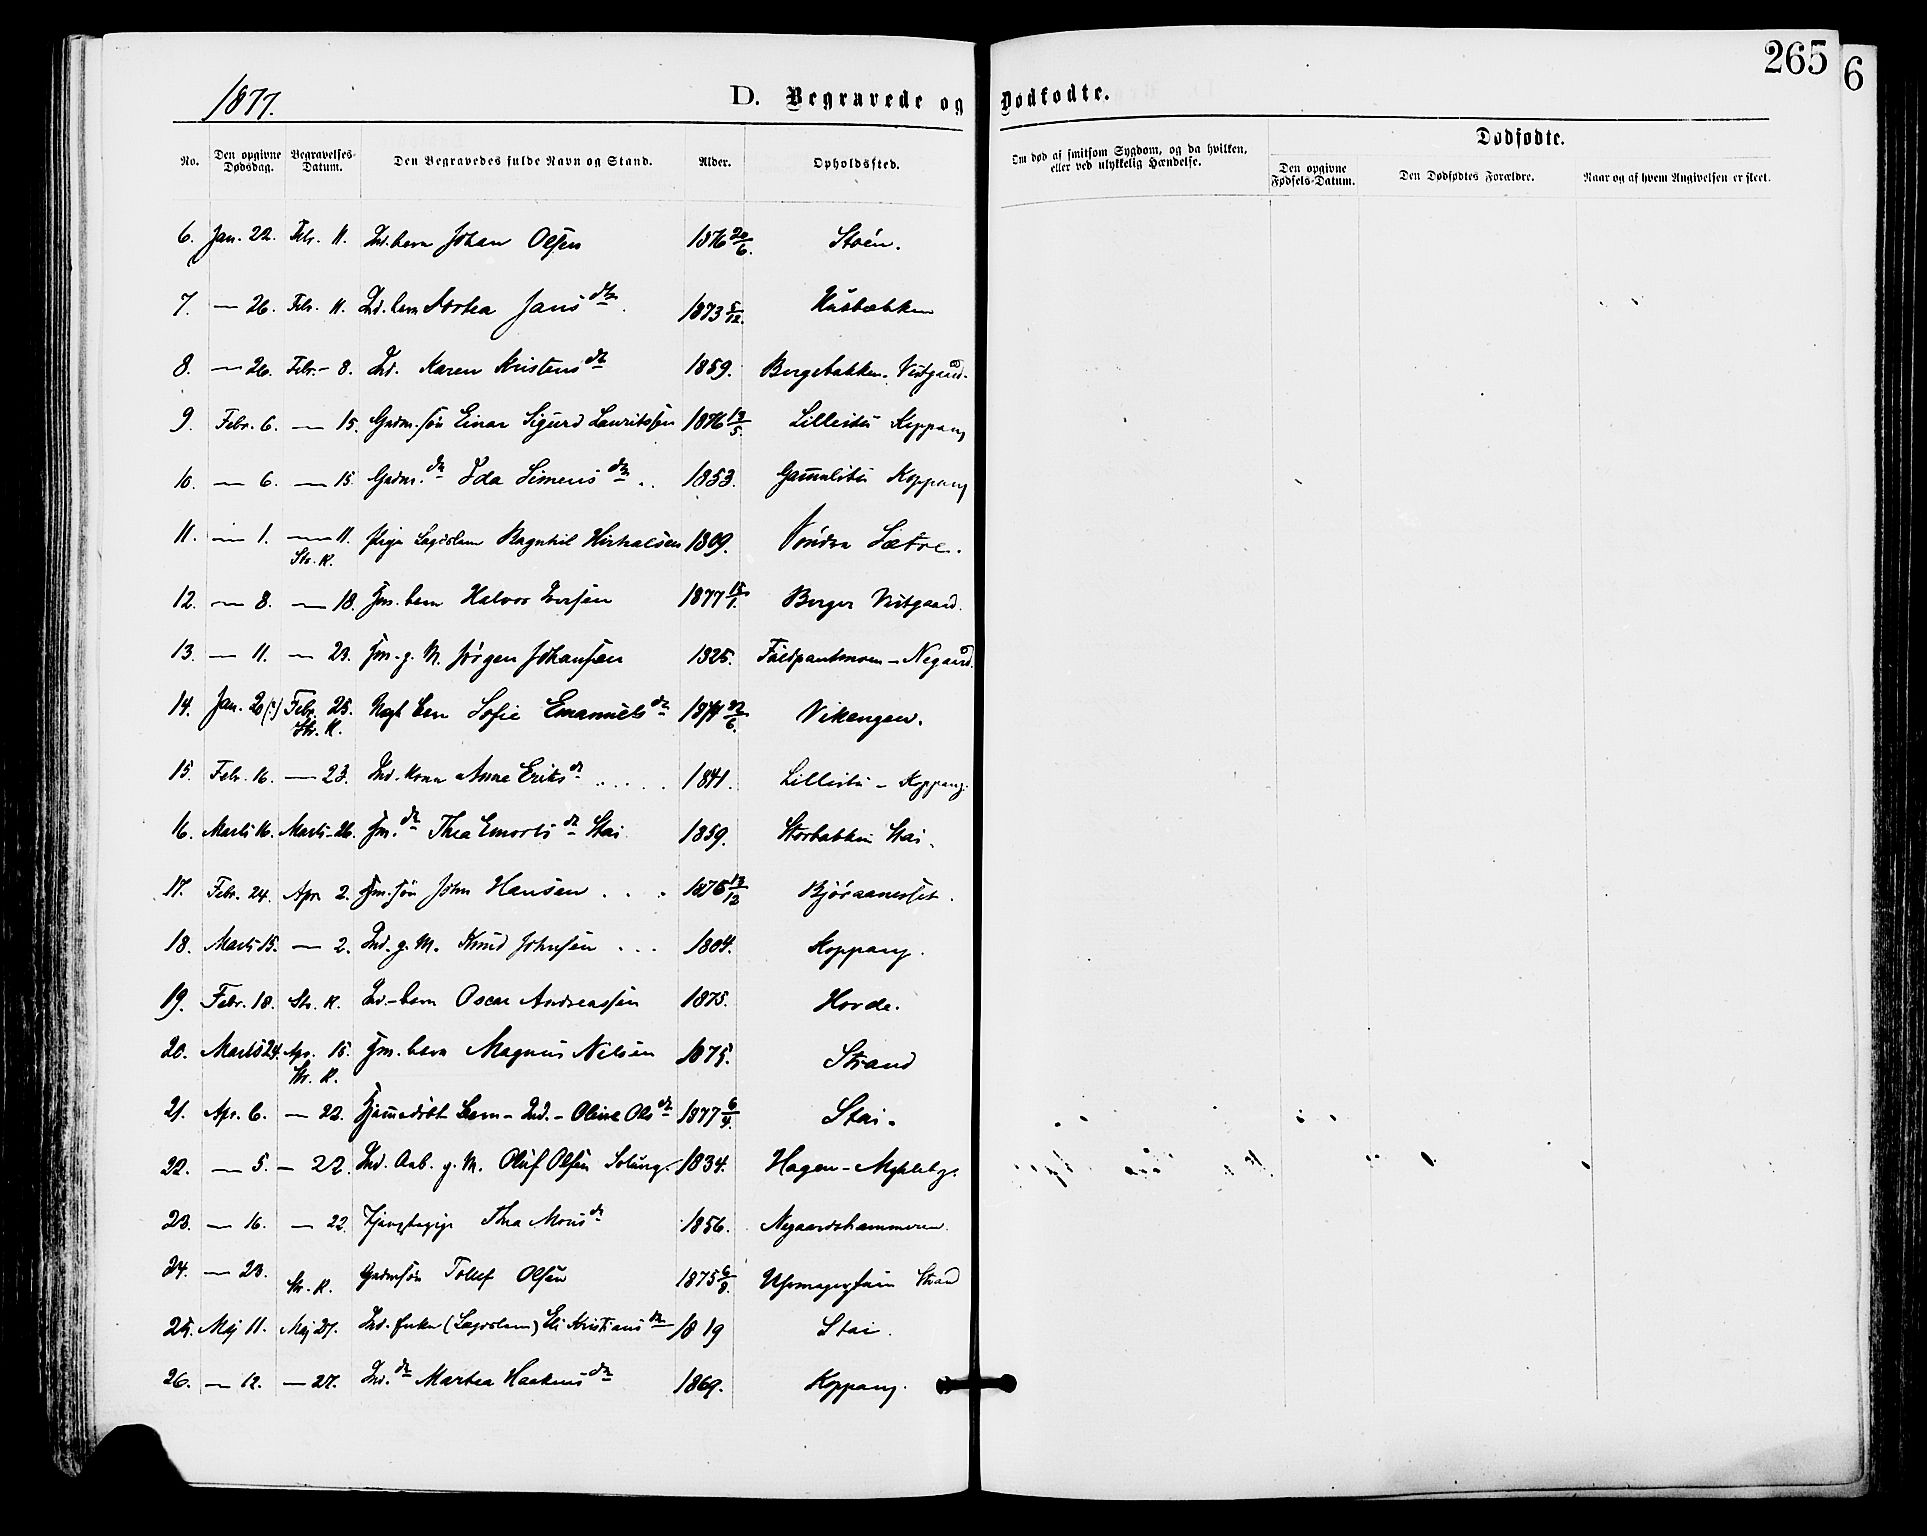 265
6
1877.
D. Begravede og Dødfødte.
No. Den opgivne Dødsdag. Begravelses-Datum. Den Begravedes fulde Navn og Stand. Alder. Opholdssted. Om død af smitsom Sygdom, og da hvilken, eller ved ulykkelig Hændelse. Dødfødte.
Den opgivne Fødsels-Datum. Den Dødfødtes Forældre. Naar og af hvem Angivelsen er skeet.
6. Jan. 22. Febr. 11. Ind. barn Johan Olsen 1876 20/6. Stoén.
7. — 26. Febr. 11. Ind. barn Jans dtr. 1873 5/12. Husbakken
8. — 26. Febr. 8. Ind. Karen Kristens dtr 1859. Bergebakken Vestgaard.
9. Febr. 6. — 15. Gadm. søn Einar Sigurd Lauritssen 1876 13/5. Lillestu Koppang
10. — 6. — 15. Gadm. dtr Ida Simens dtr .. 1853. Gammelstu Koppang
11. — 1. — 11. Str. K. Pige Lægdslem Ragnhil 1809. Søndre Sætre.
12. — 8. — 18. Jm. barn Halvor Iversen 1877 15/1. Berger Vestgaard.
13. — 11. — 23. Jm. g. M. Jørgen Johansen 1825. Negaard.
14. Jan. 20 (?) Febr. 25. Str. K. Sofie Emanuels dtr 1874 22/6. Vikengen.
15. Febr. 16. — 23. Ind. Kona Anne Eriks dtr ..... 1841. Lillestu - Koppang.
16. Marts 16. Marts 26. Jm. dtr Thea dtr Stai 1859. Storbakken Stai.
17. Febr. 24. Apr. 2. Jm. søn John Hansen ... 1875 13/12 Bjøraanesset.
18. Marts 15. — 2. Ind. g. M. Knud Johnsen ... 1804. Koppang.
19. Febr. 18. Str. K. Ind. barn Oscar Andreassen 1875. Horde.
20. Marts 24. Apr. 15. Str. K. Jm. barn Magnus Nilsen 1875. Strand
21. Apr. 6. — 22. Hjemedøbt Barn - Ind. - Oline Ols dtr 1877 6/4. Stai.
22. — 5. — 22. Ind. Arb. g. M. Oluf Olsen Solung 1834. Hagen - Mykleby.
23. — 16. — 22. Thea Mons dtr 1856. Negaardshammeren.
24. — 23. Str. K. Gadmsøn Tollef Olsen 1875 6/9. Strand
25. Maj 11. Maj 27. Ind. Enke (Lægdslem) Eli Kristians dtr 1819 Stai.
26. — 12. — 27. Ind. dtr Martea Haakens dtr 1869. Koppang.